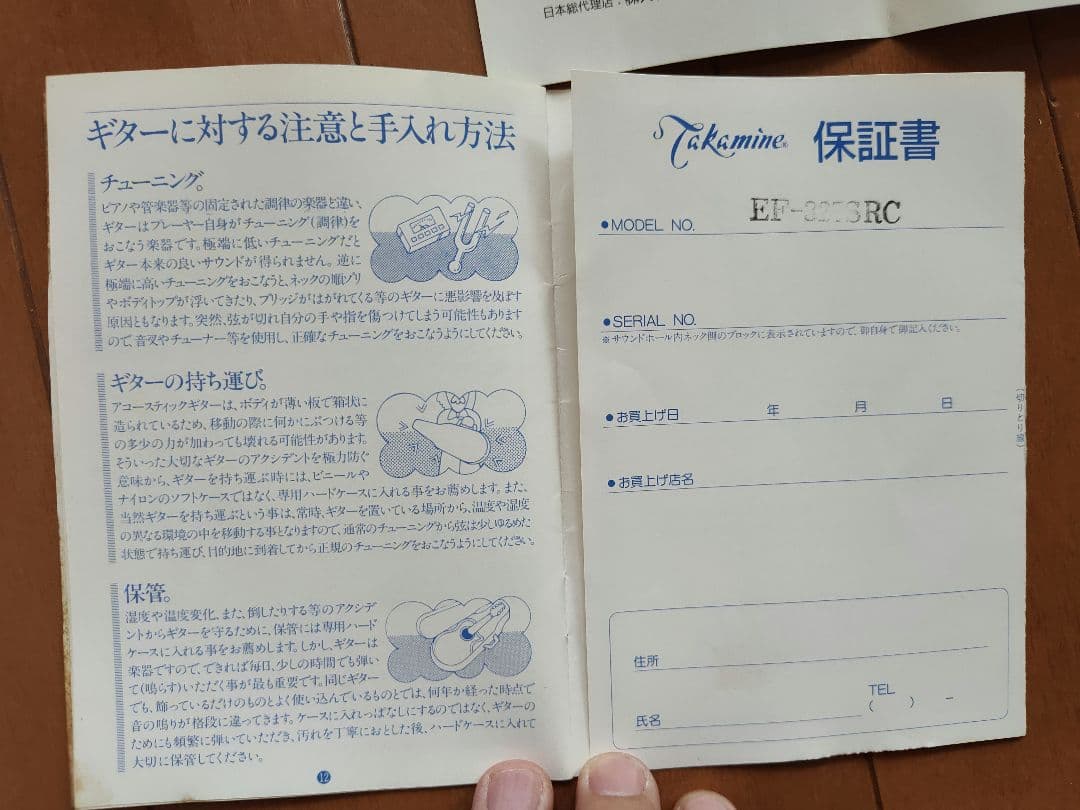 日本総代理店：
ギターに対する注意と手入れ方法
チューニング。
ピアノや管楽器等の固定された調律の楽器と違い、
ギターはプレーヤー自身がチューニング(調律)を
おこなう楽器です。極端に低いチューニングだと
ギター本来の良いサウンドが得られません。逆に
極端に高いチューニングをおこなうと、ネックの順ゾリ
やボディトップが浮いてきたり、ブリッジがはがれてくる等のギターに悪影響を及ぼす
原因ともなります。突然、弦が切れ自分の手や指を傷つけてしまう可能性もあります
ので、音叉やチューナー等を使用し、正確なチューニングをおこなうようにしてください。
ギターの持ち運び。
アコースティックギターは、ボディが薄い板で箱状に
造られているため、移動の際に何かにぶつける等
の多少の力が加わっても壊れる可能性があります。
そういった大切なギターのアクシデントを極力防ぐ
意味から、ギターを持ち運ぶ時には、ビニールや
ナイロンのソフトケースではなく、専用ハードケースに入れる事をお薦めします。また、
当然ギターを持ち運ぶという事は、常時、ギターを置いている場所から、温度や湿度
の異なる環境の中を移動する事となりますので、通常のチューニングから弦は少しゆるめた
状態で持ち運び、目的地に到着してから正規のチューニングをおこなうようにしてください。
保管。
湿度や温度変化、また、倒したりする等のアクシデ
ントからギターを守るために、保管には専用ハード
ケースに入れる事をお薦めします。しかし、ギターは
楽器ですので、できれば毎日、少しの時間でも弾い
て(鳴らす)いただく事が最も重要です。同じギター
でも、飾っているだけのものとよく使い込んでいるものとでは、何年か経った時点で
音の鳴りが格段に違ってきます。ケースに入れっぱなしにするのではなく、ギターの
ためにも頻繁に弾いていただき、汚れを丁寧におとした後、ハードケースに入れて
大切に保管してください。
12
Takamine® 保証書
●MODEL NO. EF-327SRC
●SERIAL NO.
※サウンドホール内ネック側のブロックに表示されていますので、御自身で御記入ください。
●お買上げ日 年 月 日
●お買上げ店名
(切りとり線)
住所
TEL
氏名 ( ) −